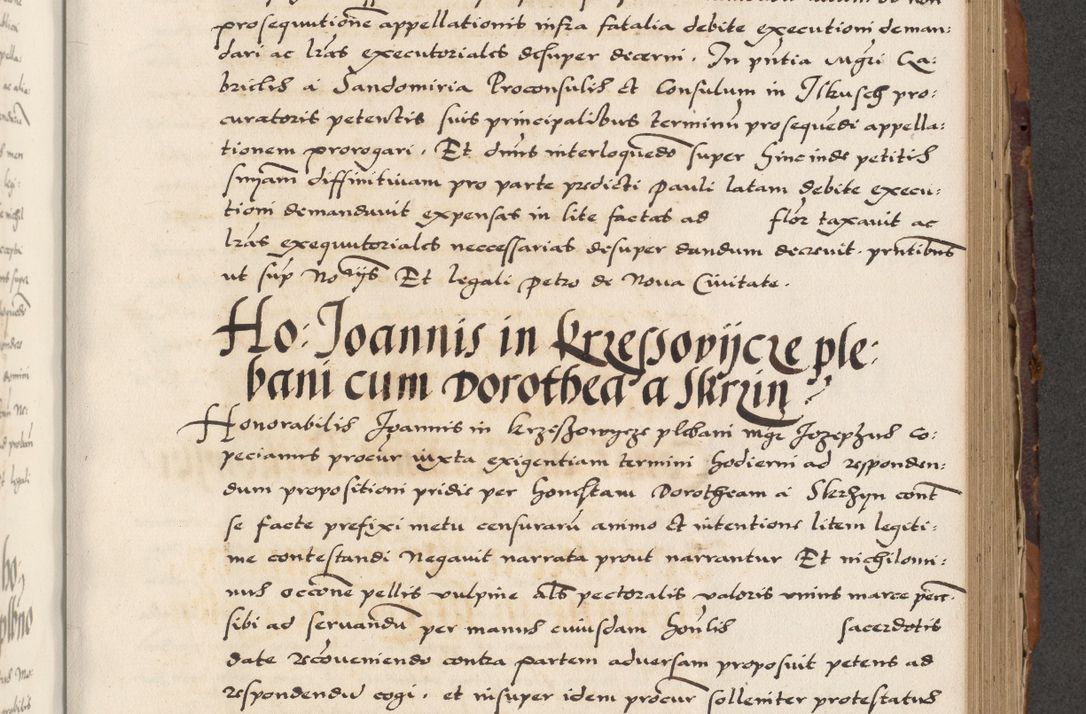 prosequutionē appellationis infra fatalia debite executioni deman:
dari ac lr̃as executoriales desuper decerni. In pñtia Mgr̃i Ga:
brielis á Sandomiria Proconsulis et Consulum in Ilkusch pro:
curatoris petentis suis principalibus terminū prosequēdi appella:
tionem prorogari. Et dm̃s interloquendo super hincinde petitis
sm̃am diffinitiuam pro parte predicti Pauli latam debite execu:
tioni demandauit expensas in lite factas ad flor taxauit ac
lr̃as exequutoriales neccessarias desuper dandum decreuit. pr̃ntibus
ut sup̃ No^ijs Et legali Petro de Noua Ciuitate.
Ho: Joannis in Krzessovijcze ple:
bani cum Dorothea a Skrzin
Honorabilis Joannis in Krzesszowycze plebani mgr Jozephus Co:
peciamus procur iuxta exigentiam termini hodierni ad responden:
dum propositioni pridie per honestam Dorotheam á Skrzhyn cont̃
se facte prefixi metu censurarū animo et intentione litem legiti:
me contestandi Negauit narrata prout narrantur Et nichilomi:
nus occōne pellis vulpine als pectoralis valoris vnius marce
sibi ad seruandū per manus cuiusdam hon̄lis sacerdotis
date recōueniendo contra partem aduersam proposuit petens ad
respondendū cogi. et insuper idem procur solleniter protestatus